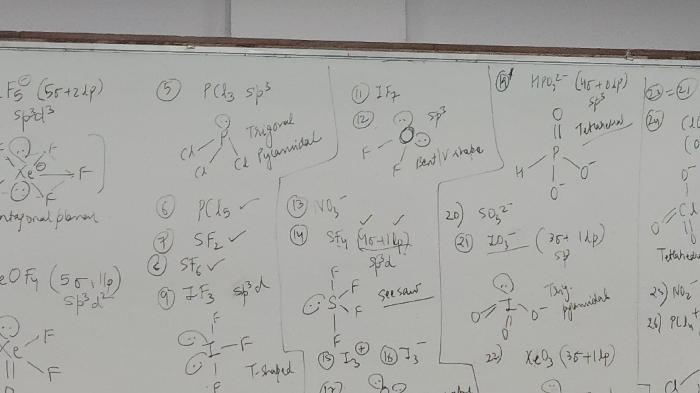 F5⊖ (5σ+2lp)
sp³d³
F
Xe⊖
F
F
F
pentagonal planar
XeOF4 (5σ, 1lp)
sp³d²
F
Xe
F
⑤ PCl3 sp³
P
Cl
Cl
Cl
Trigonal
Pyramidal
⑥ PCl5 ✓
⑦ SF2 ✓
⑧ SF6 ✓
⑨ IF3 sp³d
F
I
F
F
T-shaped
⑪ IF7
⑫ sp³
O
F
F
Bent/V shape
⑬ NO3⁻
⑭ SF4 (4σ+1lp)
sp³d
F
S
F
F
F
See saw
⑮ I3⁺ ⑯ I3⁻
HPO3²⁻ (4σ+0lp)
sp³
O
P
H
O⁻
O⁻
Tetrahedral
20) SO3²⁻
㉑ IO3⁻ (3σ+1lp)
sp³
I
O
O
O⁻
Trig.
pyramidal
22) XeO3 (3σ+1lp)
㉓ = ㉑
㉔
O⁻
O
Cl
Tetrahedral
25) NO2⁻
26) PCl4⁺
Cl